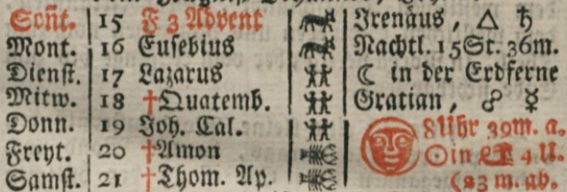 Sont. 15 F 3 Advent Irenäus, △ ♄
Mont. 16 Eusebius Nachtl. 15St. 36m.
Dienst. 17 Lazarus ☾ in der Erdferne
Mitw. 18 †Quatemb. Gratian, ☍ ☿
Donn. 19 Joh. Cal. 8Uhr 39m. a.
Freyt. 20 †Amon ☉in 4 U.
Samst. 21 †Thom. Ap. 23 m. ab.